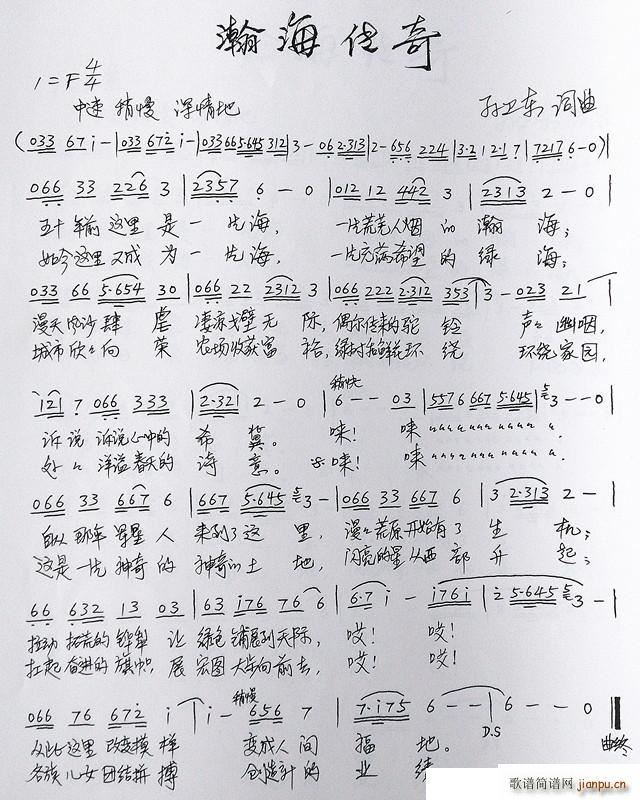 瀚海传奇
1=F 4/4
中速 稍慢 深情地
孙卫东 词曲
(033 67 i-|033 672 i-|033 66 5·645 312|3-06 2·313|2-656 224|3·2 12·17|7217 6-0)|
066 33 226 3|2357 6-0|012 12 442 3|2313 2-0|
五十年前这里是一片海， 一片荒芜人烟的瀚海；
如今这里又成为一片海， 一片充满希望的绿海；
033 66 5·654 30|066 22 2312 3|066 222 2·312 353|3-023 21|
漫天风沙肆虐 凄凉戈壁无际，偶尔传来的驼铃 声々幽咽，
城市欣々向荣 农场收获富裕，绿树和鲜花环绕 环绕家园，
i21 7 066 333|2·321 2-0|6--03|5576 667 5·645|3--0|
稍快
诉说诉说心中的希冀。 唻！ 唻
处々洋溢春天的诗意。 唻！ 唻
066 33 667 6|667 5·645 3-|066 33 667 6|3 2·313 2-|
自从那年星星人来到了这里，漫々荒原开始有了生机；
这是一片神奇的神奇的土地，闪亮的星从西部升起；
66 632 13 03|63 i76 76 6|6·7 i-|i76i|2 5·645 3-|
拉动拓荒的铧犁 让绿色铺展到天际， 哎！ 哎！
扛起奋进的旗帜，展宏图大步向前去， 哎！ 哎！
稍慢
066 76 672 i|i-656 7|7·i75 6--|6--0|
D.S
曲终
从此这里改变模样 变成人间福地。
各族儿女团结拼搏 创造新的业绩
歌谱简谱网
jianpu.cn